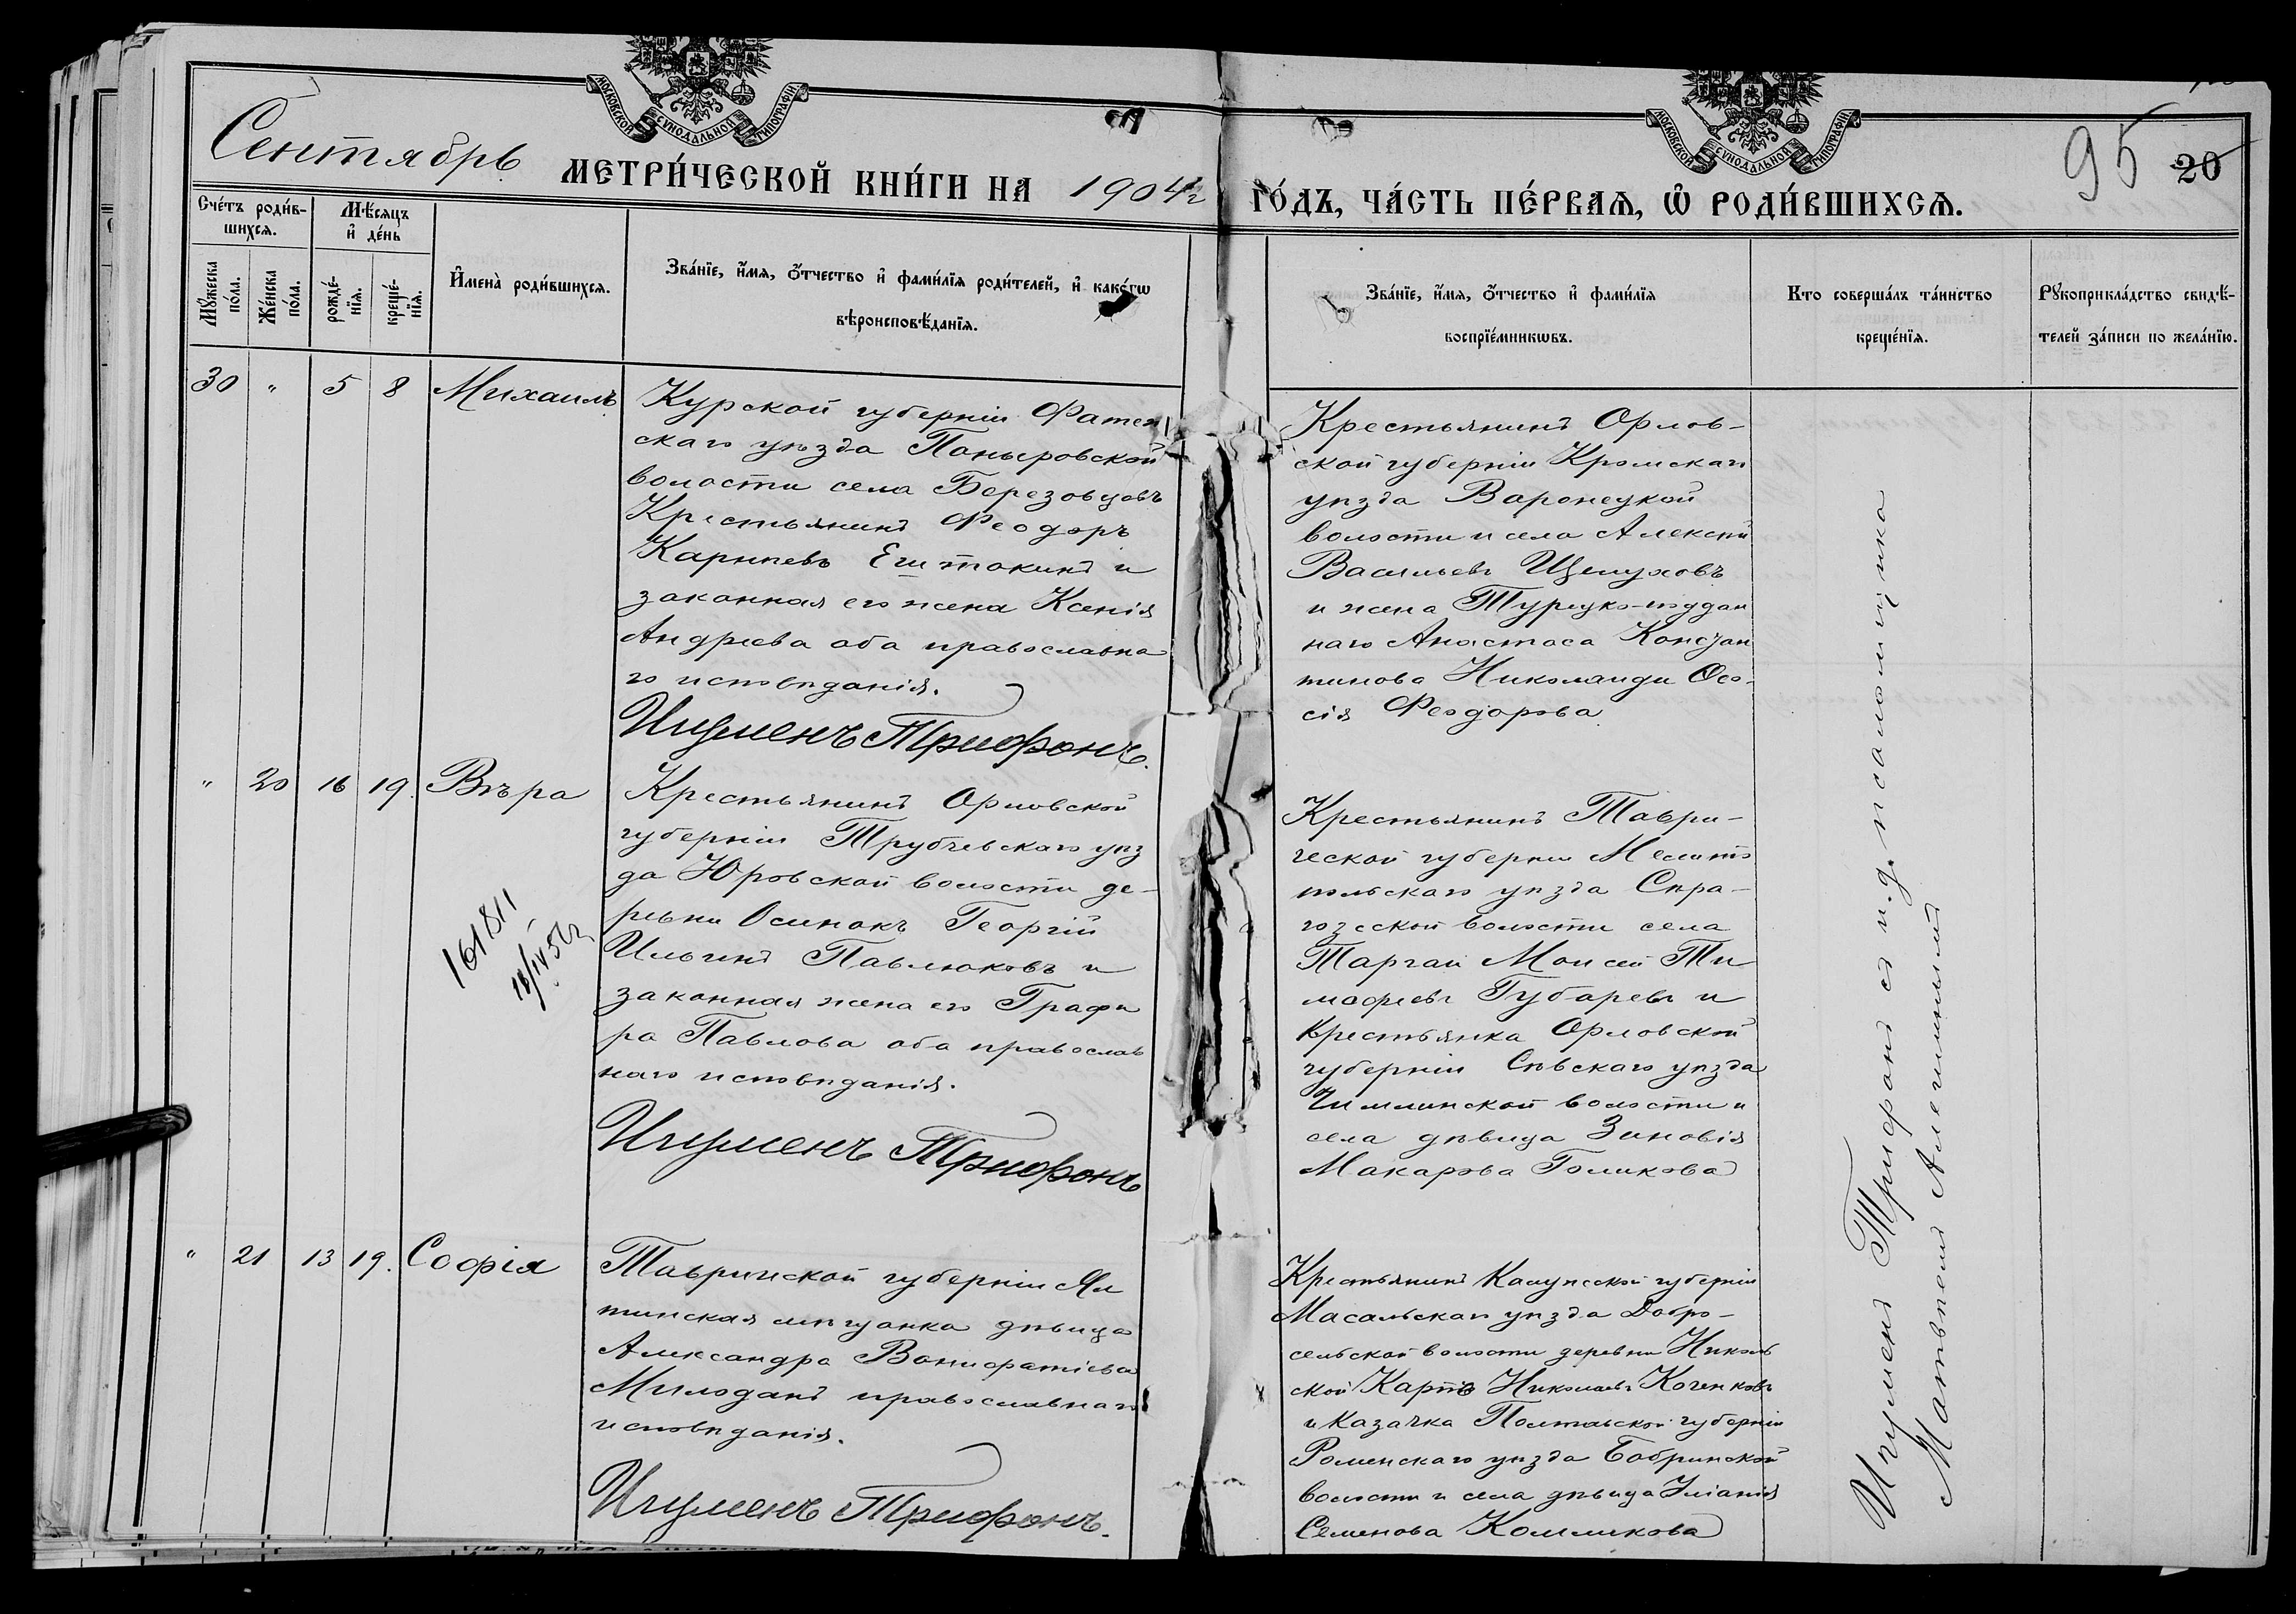 МОСКОВСКОЙ СѴНОДАЛЬНОЙ ТИПОГРАФІИ
МОСКОВСКОЙ СѴНОДАЛЬНОЙ ТИПОГРАФІИ
Сентябрь
МЕТРИ́ЧЕСКОЙ КНИ́ГИ НА 1904 г
ГО́ДЪ, ЧА́СТЬ ПЕ́РВАЯ, Ѡ РОДИ́ВШИХСЯ.
95 20
Сче́тъ роди́в-
шихся.
Мѣ́сяцъ
и де́нь
Мꙋ́жеска
по́ла.
Же́нска
по́ла.
рожде́-
нїя.
креще́-
нїя.
Имена̀ роди́вшихся.
Зва́нїе, и́мя, о́тчество и фами́лїя роди́телей, и како́гѡ
вѣроисповѣ́данїя.
Зва́нїе, и́мя, о́тчество и фами́лїя
воспрїе́мникѡвъ.
Кто соверша́лъ та́инство
креще́нїя.
Рꙋкоприкла́дство свидѣ́-
телей за́писи по жела́нїю.
30 " 5 8 Михаилъ
Курской губерніи Фатеж
скаго уѣзда Поныровской
волости села Березовцевъ
Крестьянинъ Феодоръ
Карпѣевъ
законная его жена Ксенія
Андреева оба православна
го исповѣданія.
Игуменъ Трифонъ.
Крестьянинъ Орлов-
ской губерніи Кромскаго
уѣзда Воронецкой
волости и села Алексѣй
Васильевъ Щелуховъ
и жена Турецко-поддан
наго Анастаса Констан
тинова Николаиди Ѳео-
сія Феодорова
" 20 16 19. Вѣра
Крестьянинъ Орловской
губерніи Трубчевскаго уѣз
да Юровской волости де-
ревни Осинокъ Георгій
Ильинъ Павлюковъ и
законная жена его Графи
ра Павлова оба православ
наго исповѣданія.
Игуменъ Трифонъ
161811
Крестьянинъ Таври-
ческой губерніи Мелито
польскаго уѣзда Сира-
гозской волости села
Торгаи Моисей Ти
мофеевъ Губаревъ и
Крестьянка Орловской
губерніи Сѣвскаго уѣзда
волости и
села дѣвица Зиновія
Макарова Голикова
" 21 13 19. Софія
Таврической губерніи Ял
тинская мѣщанка дѣвица
Александра Вонифатіева
Милоданъ православнаго
исповѣданія.
Игуменъ Трифонъ.
Крестьянинъ Калужской губерніи
Масальскаго уѣзда Добро-
сельской волости деревни Николь
ской Карпъ Николаевъ Коченковъ
и Казачка Полтавской губерніи
Роменскаго уѣзда Бобринской
волости и села дѣвица Уліанія
Семенова Колмикова
Игуменъ Трифонъ съ и. д. псаломщика